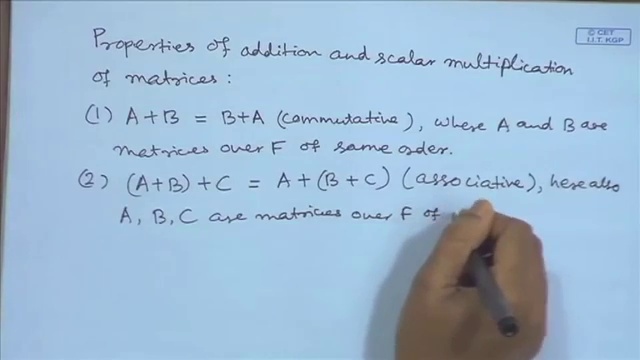 © CET
I.I.T. KGP
Properties of addition and scalar multiplication
of matrices :
(1) A+B = B+A (commutative), where A and B are
matrices over F of same order.
(2) (A+B)+C = A+(B+C) (associative), here also
A, B, C are matrices over F of